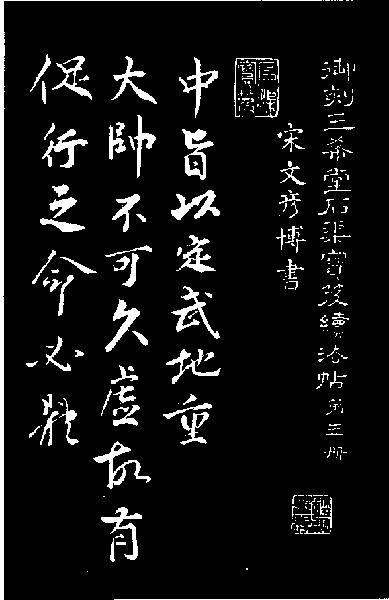 御刻三希堂石渠寶笈續法帖第三册
宋文彦博書
中旨以定武地重
大帥不可久虛故有
促行之命必